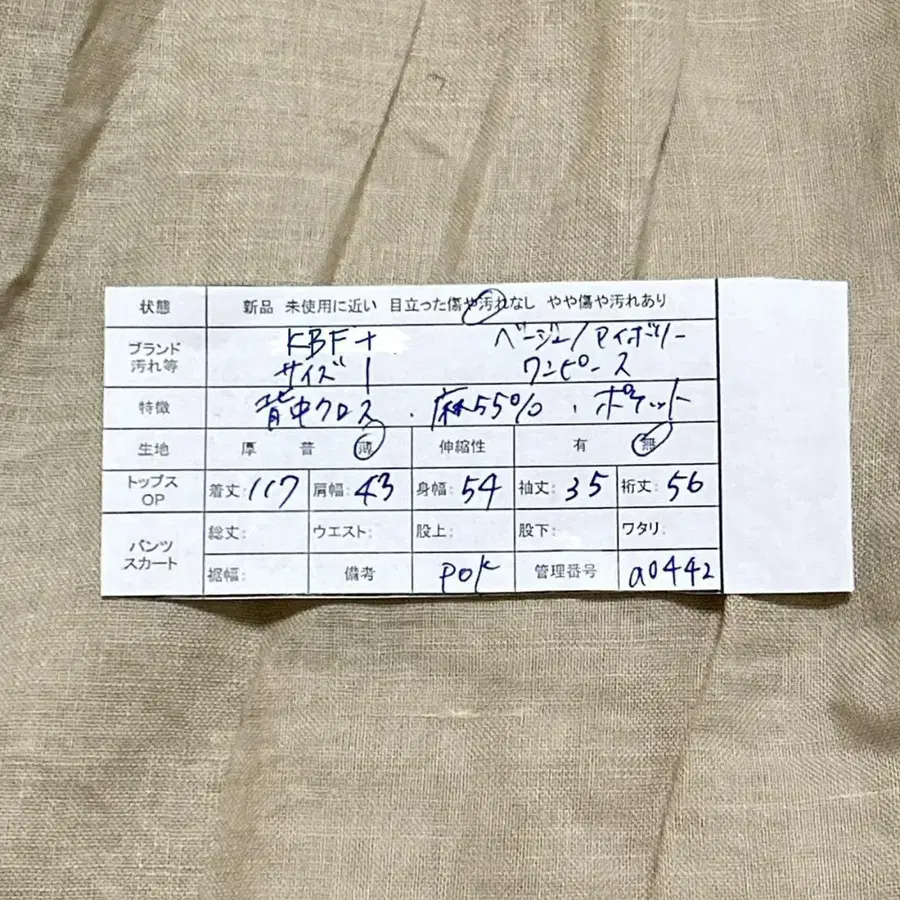 状態 新品 未使用に近い 目立った傷や汚れなし やや傷や汚れあり
ブランド 汚れ等 KBF+ ベージュ/アイボリー
サイズ 1 ワンピース
特徴 背中クロス . 麻55% . ポケット
生地 厚 普 薄 伸縮性 有 無
トップス OP 着丈:117 肩幅:43 身幅:54 袖丈:35 裄丈:56
パンツ スカート 総丈: ウエスト: 股上: 股下: ワタリ:
裾幅: 備考 pok 管理番号 a0442